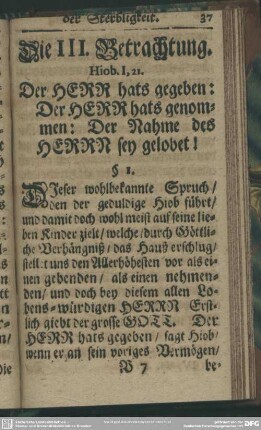 der Sterbligkeit. 37
Die III. Betrachtung.
Hiob. I, 21.
Der HERR hats gegeben:
Der HERR hats genom-
men: Der Nahme des
HERRN sey gelobet!
§ 1.
DIeser wohlbekannte Spruch/
den der gedultige Hiob führt/
und damit doch wohl meist auf seine lie-
ben Kinder zielt/ welche/ durch Göttli-
che Verhängniß/ das Hauß erschlug/
stellt uns den Allerhöhesten vor als ei-
nen gebenden/ als einen nehmen-
den/ und doch bey diesem allen Lo-
bens-würdigen HERRN Erst-
lich giebt der grosse GOTT. Der
HERR hats gegeben/ sagt Hiob/
wenn er an sein voriges Vermögen/
B 7 be-